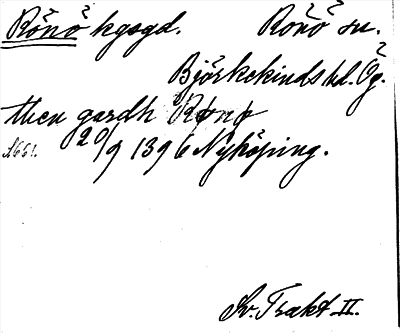 Rönö kgsgd. Rönö sn.
Björkekinds hd. Ög.
then gardh Rønø
s. 661. 20/9 1396 Nyköping.
Sv. Trakt. II.